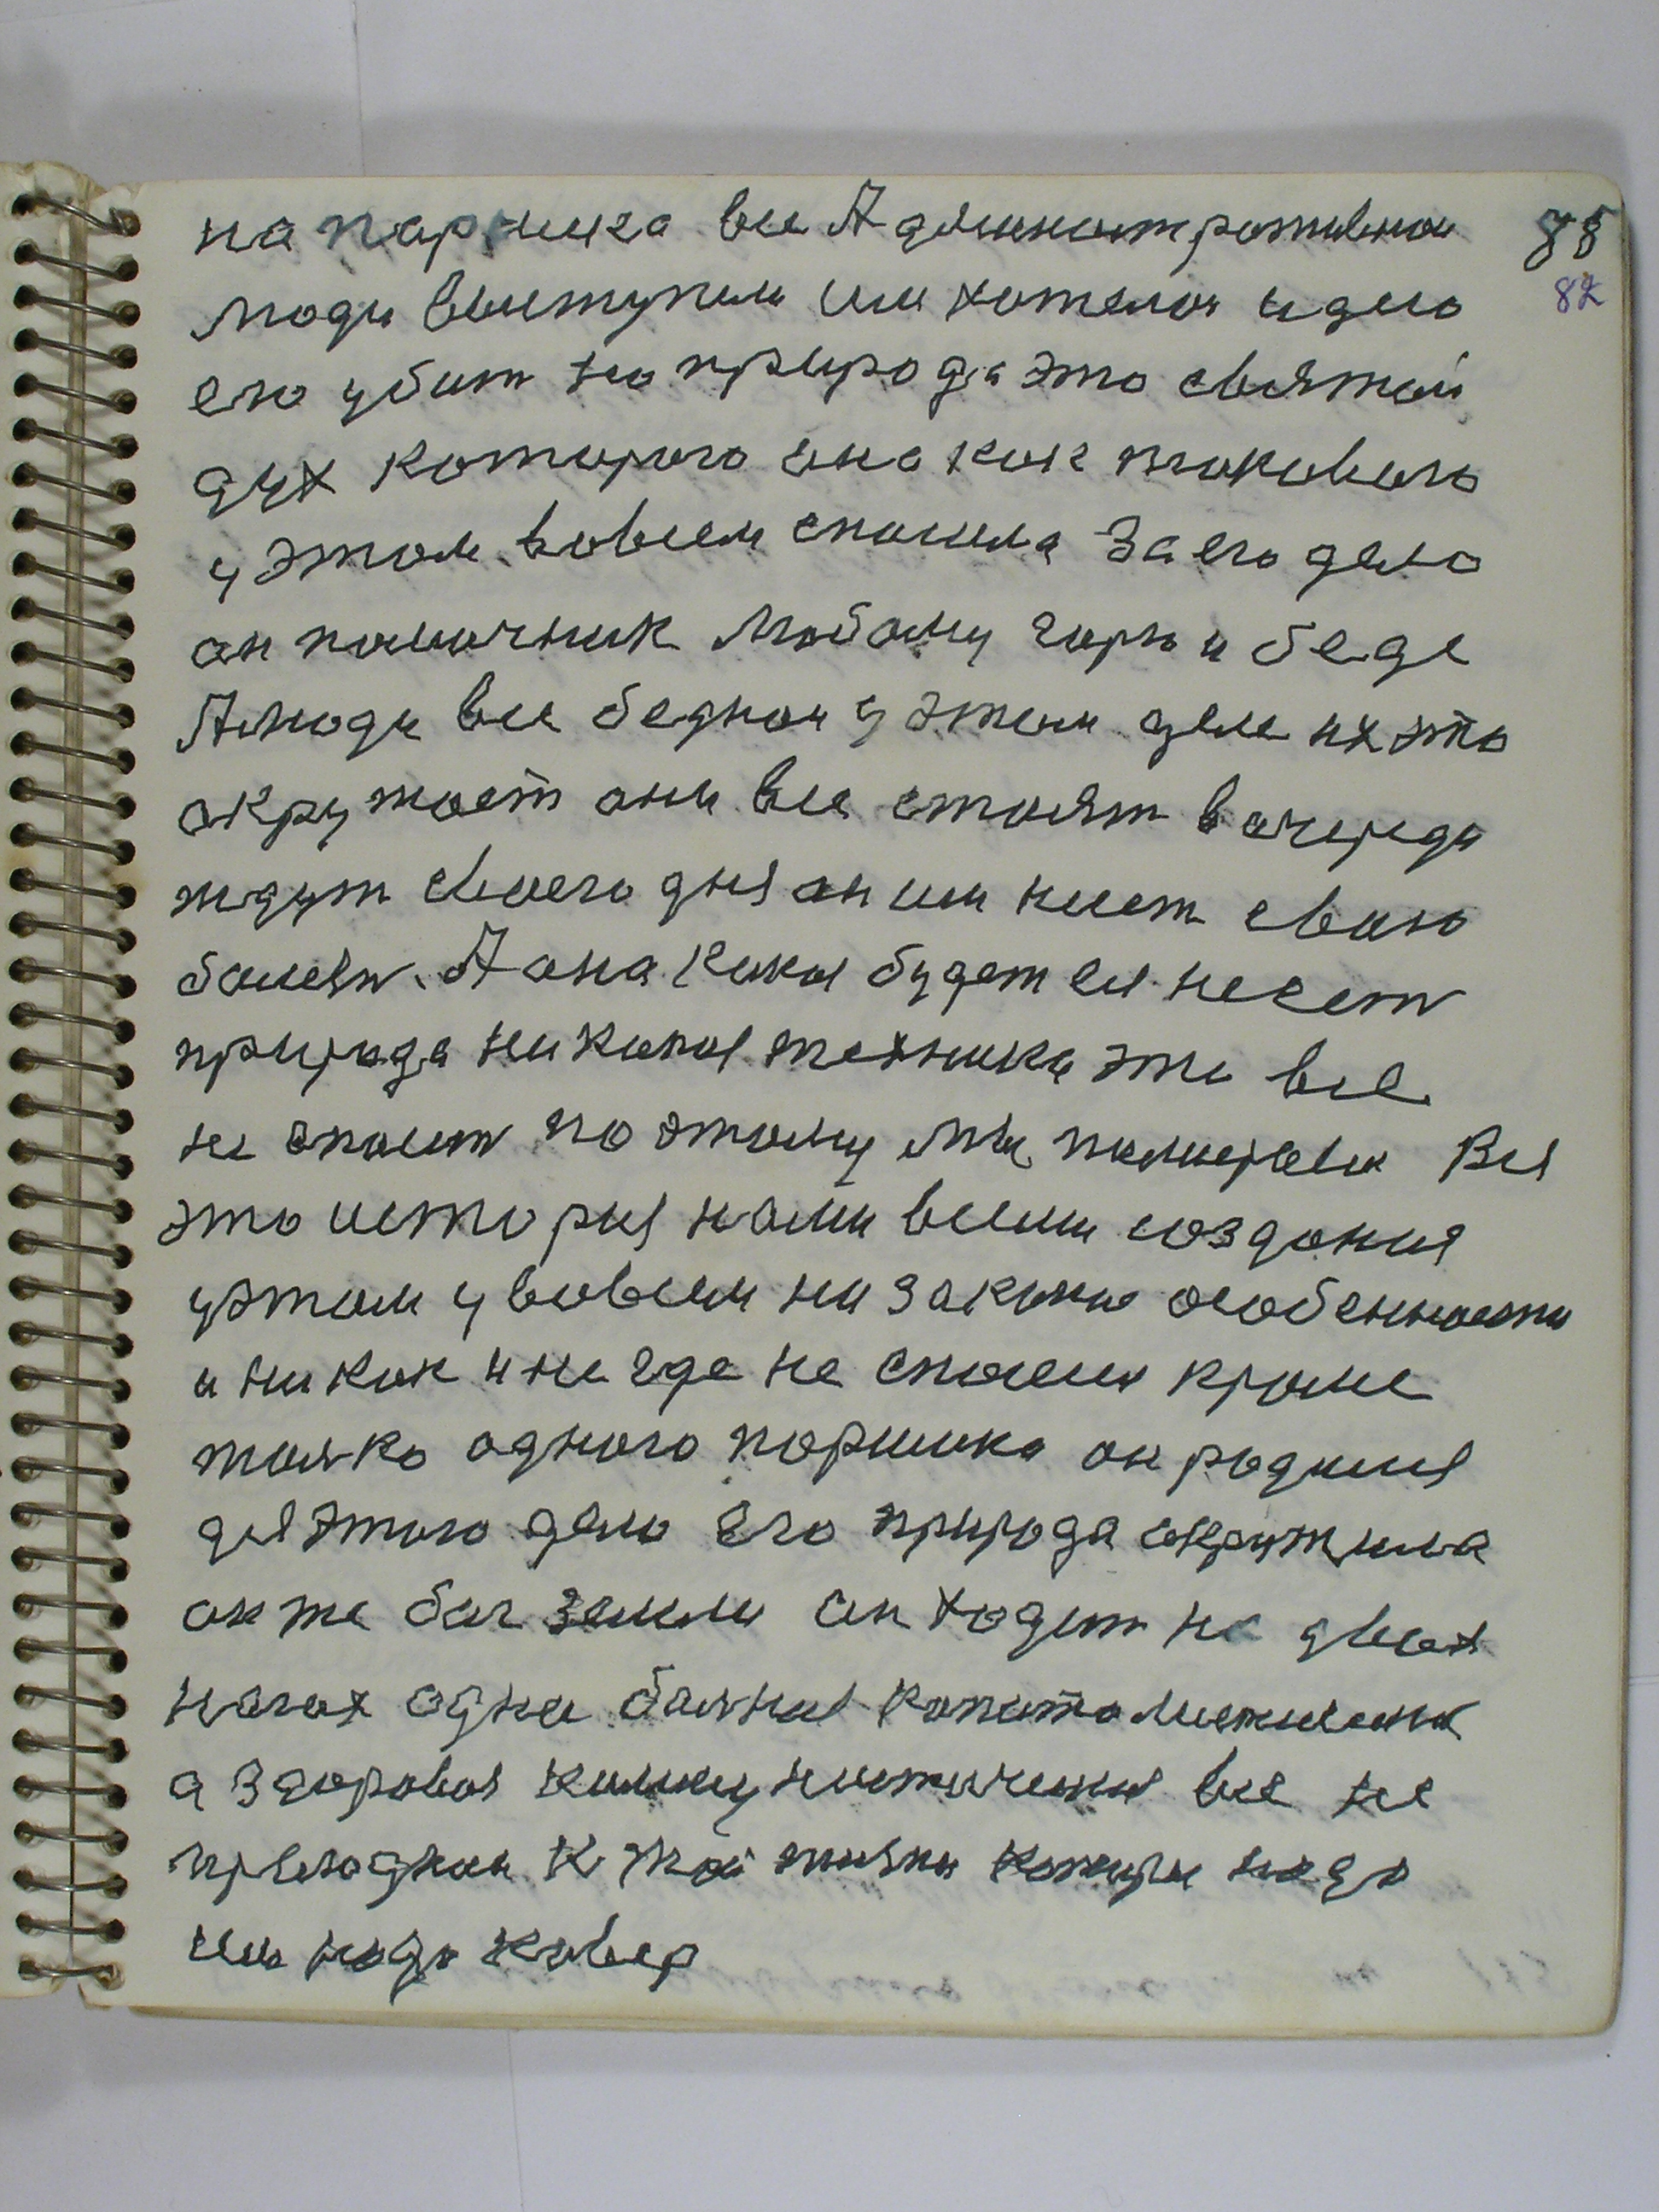 на паршика вси Администротивнои 85
люди выступили им хотелос идею 82
его убит но природа это святой
дух которого она как токового
у этом вовсем спасила За его дело
он помочник любому горю и беде
А люди все беднои у этом деле их это
окружает они все стоят в очереди
ждут своего дня он им несет свою
болезн. А она какая будет ея несет
природа ни какая техника это все
не спасет поэтому мы помираем Вся
это история нами всеми создания
у этом у вовсем ни закони особенности
и ни как и не где не спасеш кроме
толко одного паршика он родился
для этого дело его природа окружила
он же бог земли он ходит на двоих
ногах одни болния капиталистическ
а здоровая коммунистическия все не
пригоднаи к той жизни которы надо
им надо ковер